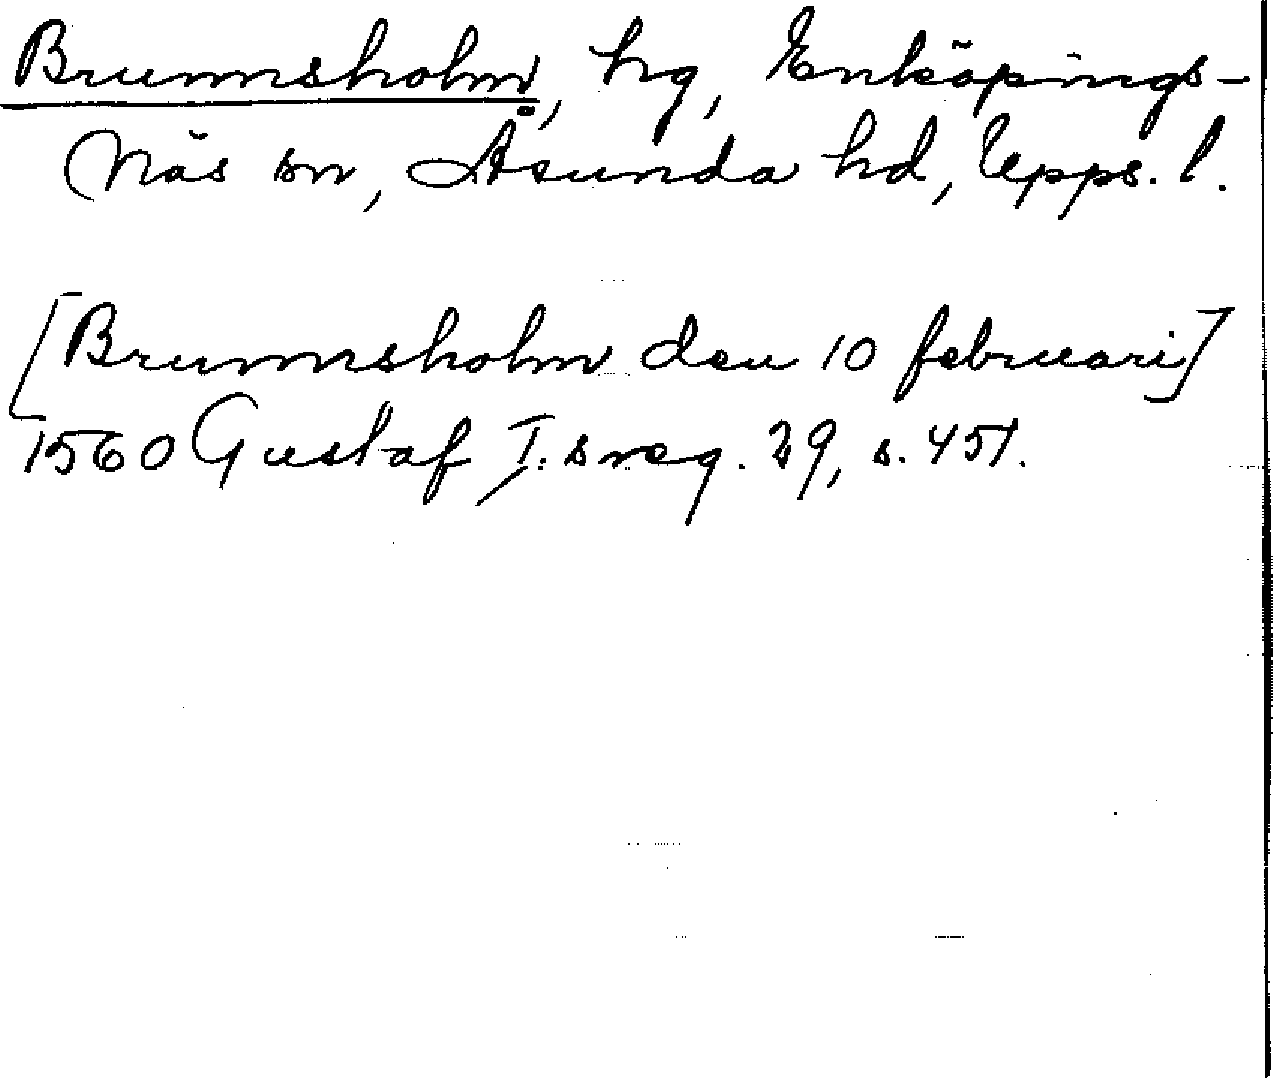 Brumsholm, hg, Enköpings-
Näs sn, Åsunda hd, Upps. l.
[Brumsholm den 10 februari]
1560 Gustaf I.s reg. 29, s. 451.